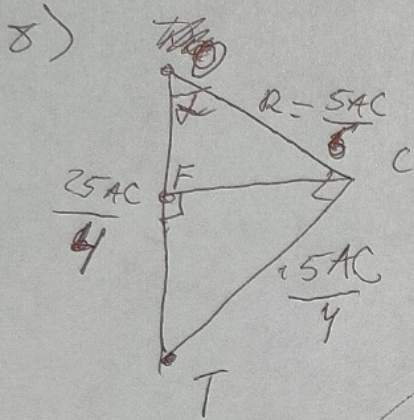 8)
α
R = 5AC/6
C
F
25AC/4
5AC/4
T